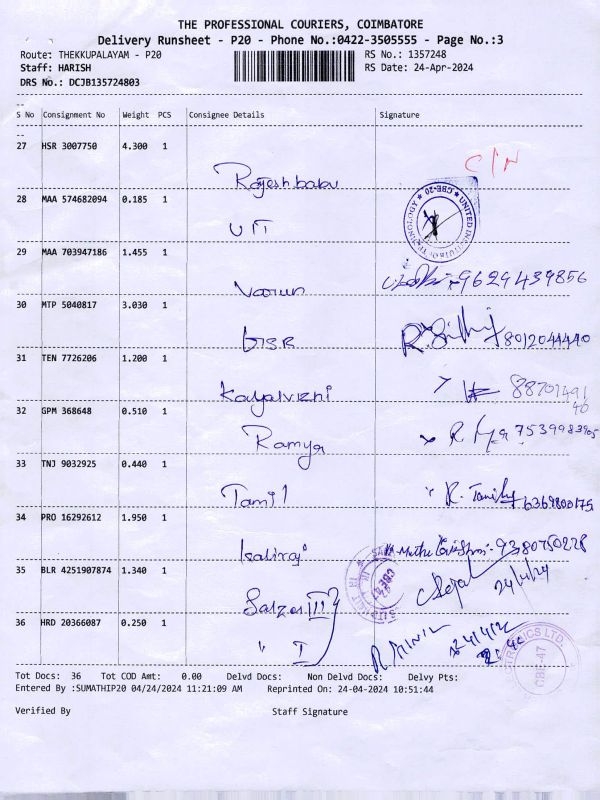 THE PROFESSIONAL COURIERS, COIMBATORE
Delivery Runsheet - P20 - Phone No.:0422-3505555 - Page No.:3
Route: THEKKUPALAYAM - P20 RS No.: 1357248
Staff: HARISH RS Date: 24-Apr-2024
DRS No.: DCJB135724803
S No Consignment No Weight PCS Consignee Details Signature
27 HSR 3007750 4.300 1
C/N
Rajeshbabu
28 MAA 574682094 0.185 1
UNITED INSTITUTE OF TECHNOLOGY ★ CBE-20 ★
UIT
29 MAA 703947186 1.455 1
Varun 9629439856
30 MTP 5040817 3.030 1
GISR 8012044440
31 TEN 7726206 1.200 1
Kalyalvizhi 88701491
40
32 GPM 368648 0.510 1
Ramya 7539983905
33 TNJ 9032925 0.440 1
Tamil R. Tamil 6369800175
34 PRO 16292612 1.950 1
Kaliraj 9380750228
35 BLR 4251907874 1.340 1
CBE-47
Salzer III 24/4/24
36 HRD 20366087 0.250 1
" I
CTRONICS LTD.
CBE-47
Tot Docs: 36 Tot COD Amt: 0.00 Delvd Docs: Non Delvd Docs: Delvy Pts:
Entered By :SUMATHIP20 04/24/2024 11:21:09 AM Reprinted On: 24-04-2024 10:51:44
Verified By Staff Signature